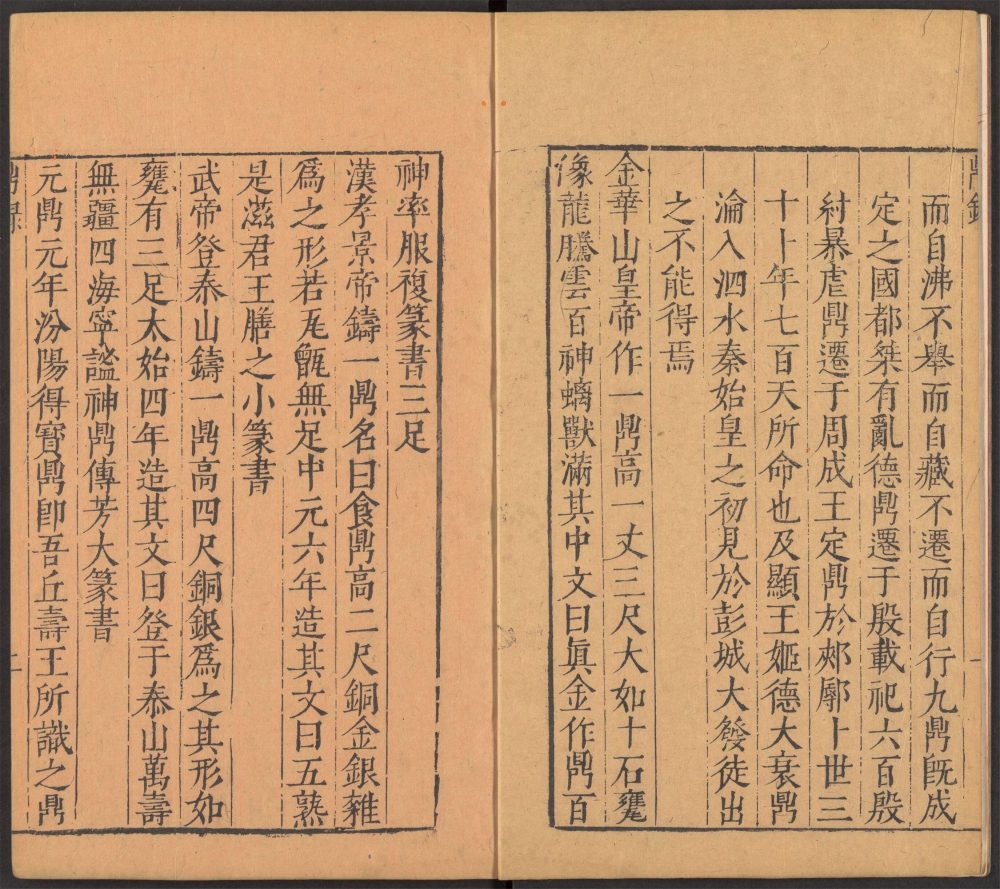 鼎錄
而自沸不舉而自藏不遷而自行九鼎旣成
定之國都桀有亂德鼎遷于殷載祀六百殷
紂暴虐鼎遷于周成王定鼎於郟鄏卜世三
十卜年七百天所命也及顯王姬德大衰鼎
淪入泗水秦始皇之初見於彭城大發徒出
之不能得焉
金華山皇帝作一鼎高一丈三尺大如十石甕
像龍騰雲百神螭獸滿其中文曰眞金作鼎百
神率服複篆書三足
漢孝景帝鑄一鼎名曰食鼎高二尺銅金銀雜
爲之形若瓦甑無足中元六年造其文曰五熟
是滋君王膳之小篆書
武帝登泰山鑄一鼎高四尺銅銀爲之其形如
甕有三足太始四年造其文曰登于泰山萬壽
無疆四海寧謐神鼎傳芳大篆書
元鼎元年汾陽得寶鼎卽吾丘壽王所識之鼎
鼎錄